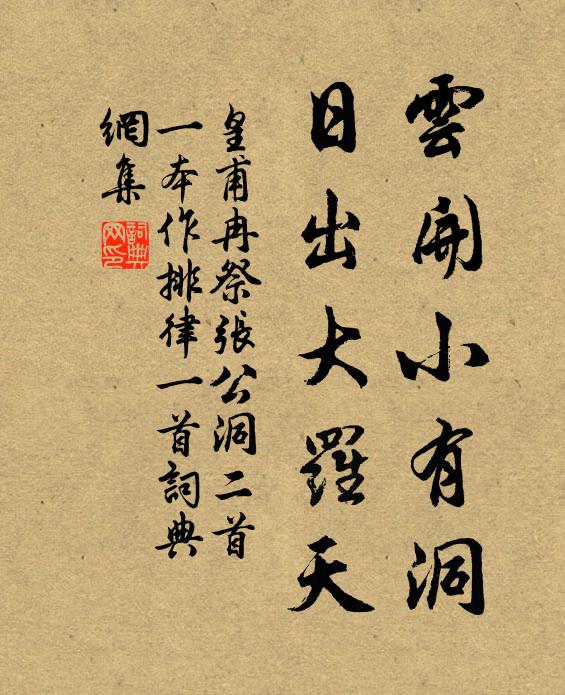 雲開小有洞
日出大羅天
皇甫冉祭張公洞二首
一本作排律一首詞典
網集
詞典
网印